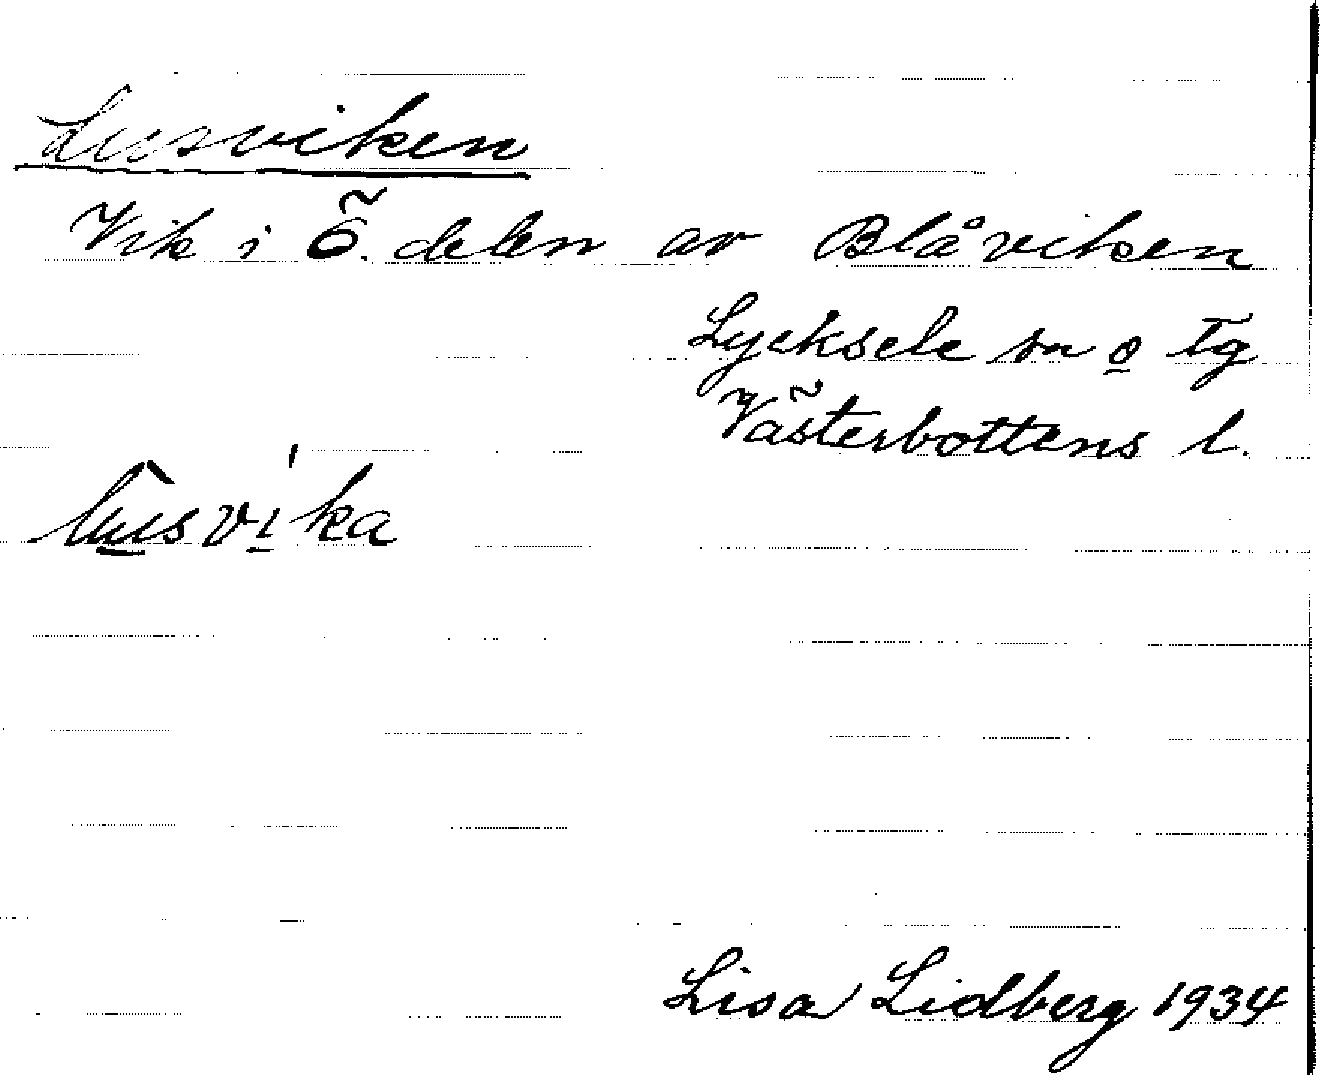 Lusviken
Vik i Ö. delen av Blåviken
Lycksele sn o tg
Västerbottens l.
lusvika
Lisa Lidberg 1934